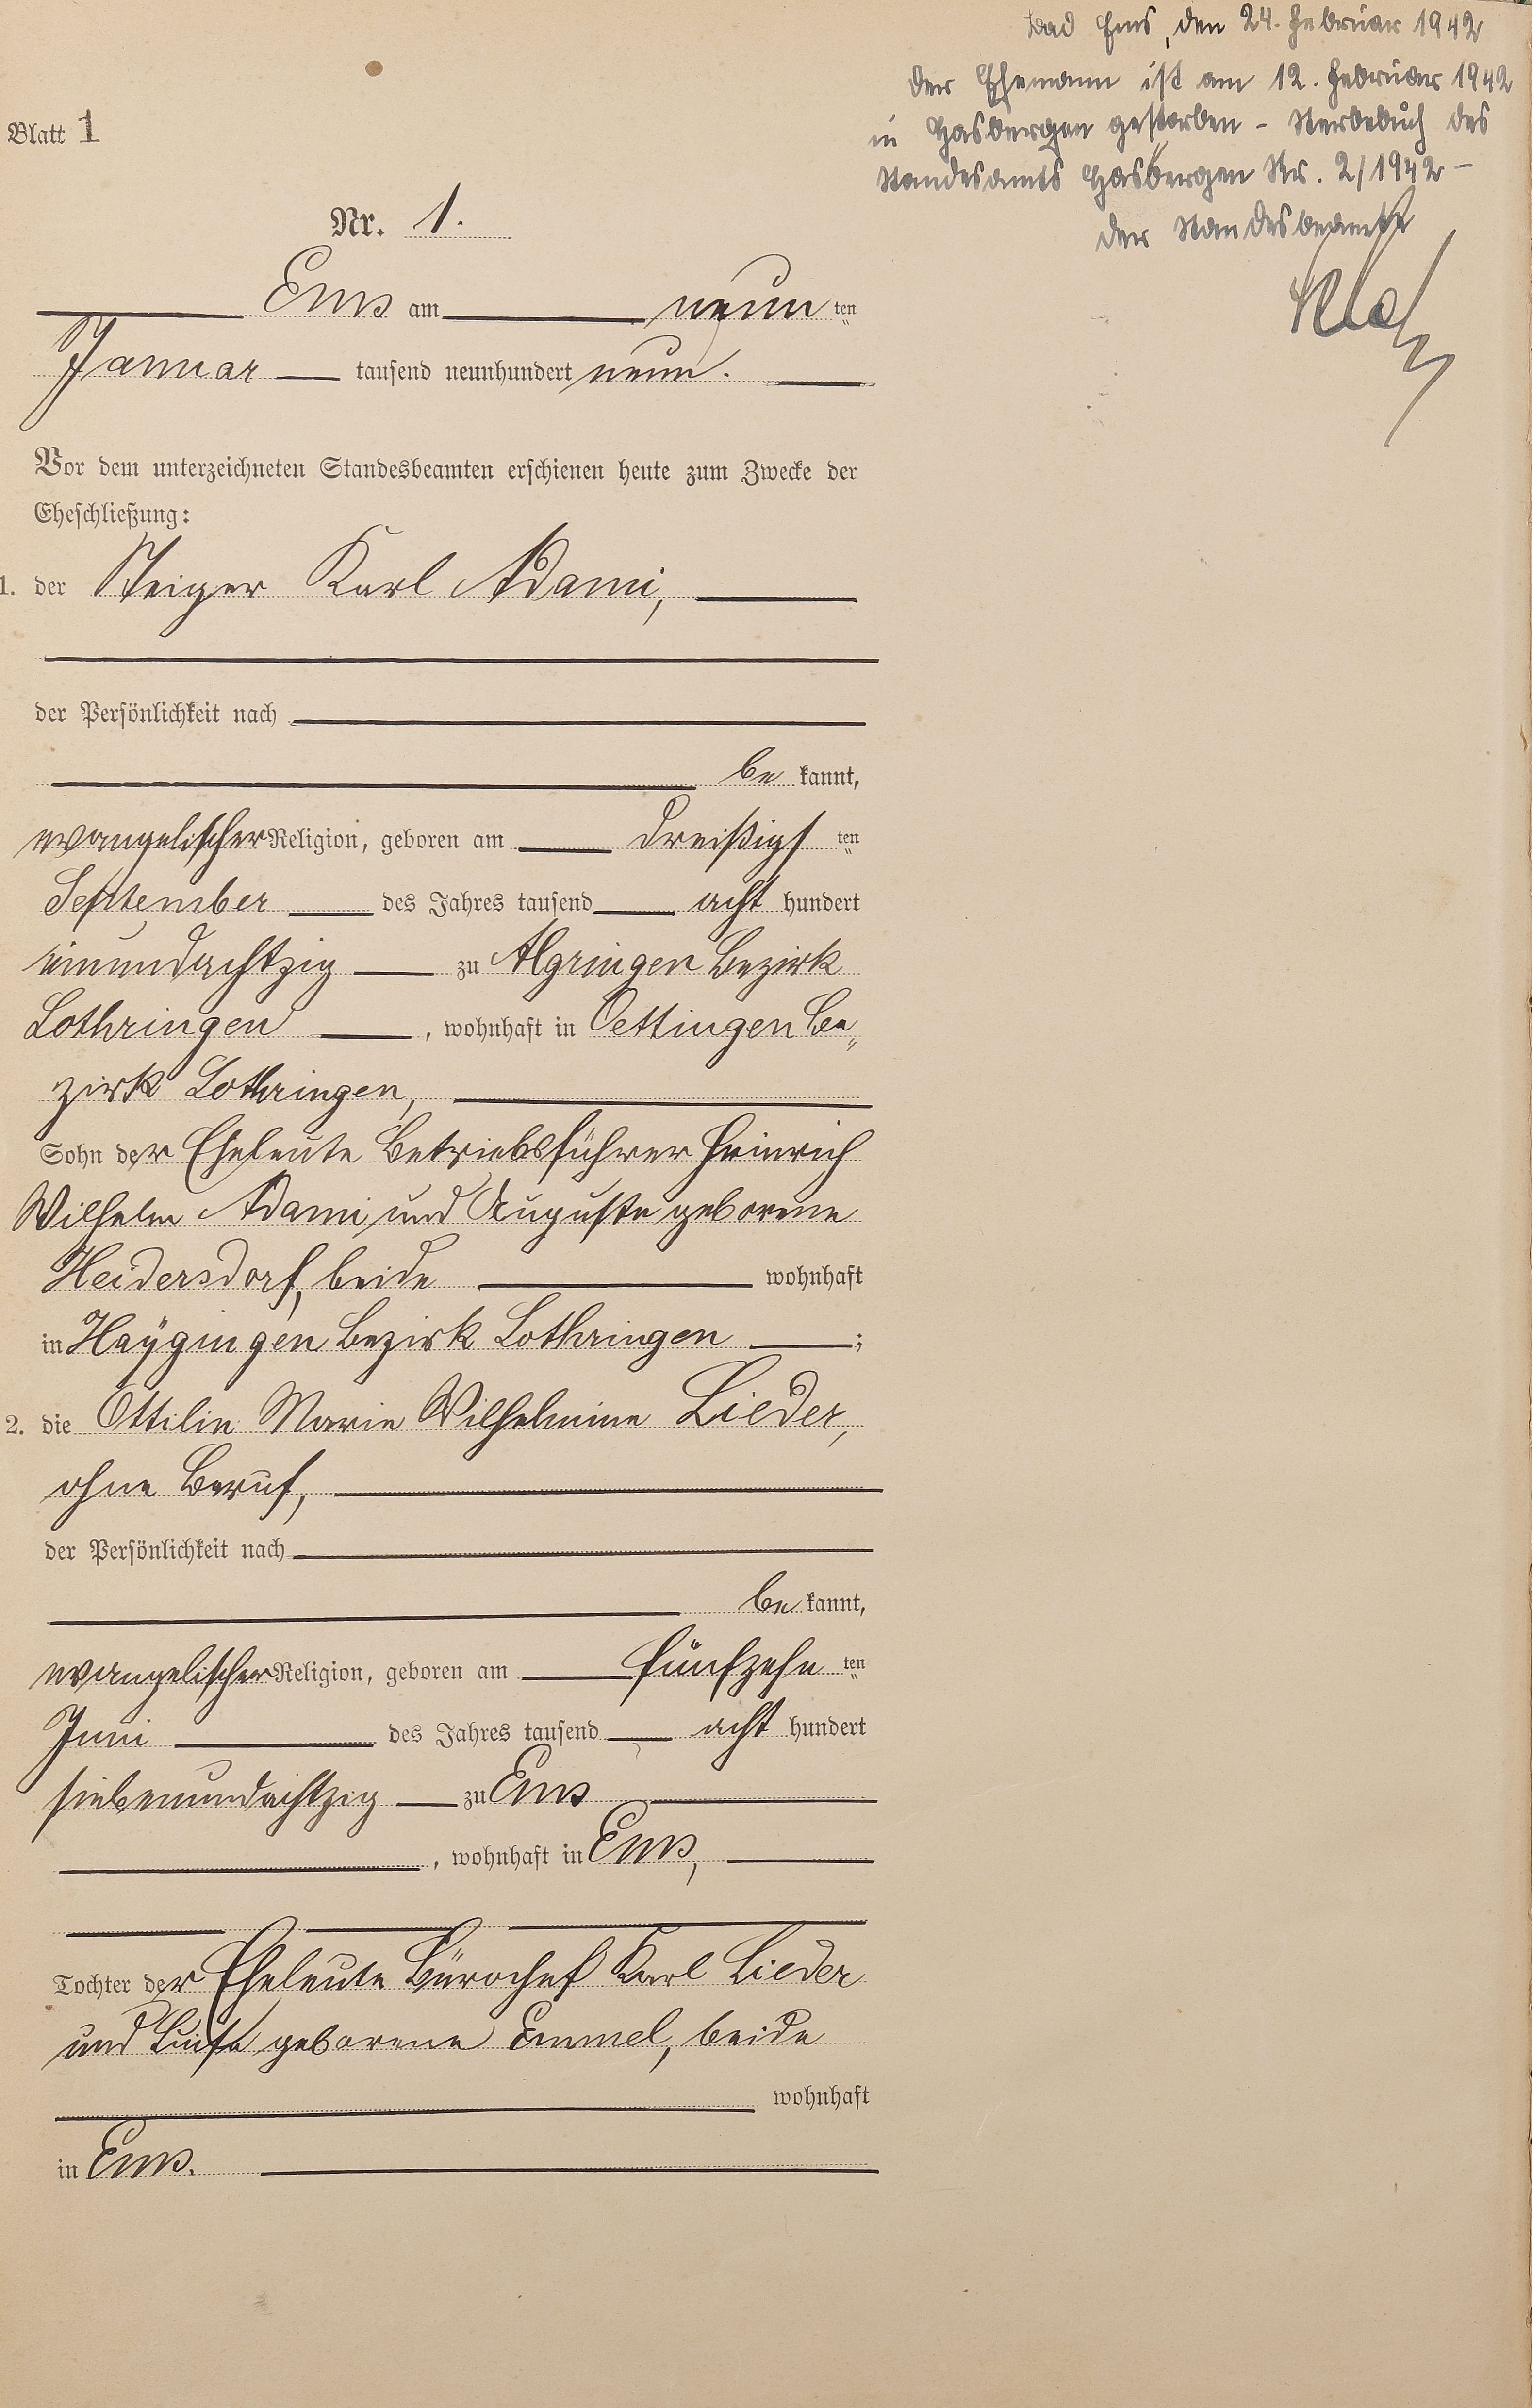 Bad Ems, den 24. Februar 1942
Der Ehemann ist am 12. Februar 1942
in Hasbergen gestorben - Sterbebuch des
Standesamts Hasbergen Nr. 2/1942 -
Der Standesbeamte
Blatt 1
Nr. 1.
Ems am neun ten
Januar tausend neunhundert neun.
Vor dem unterzeichneten Standesbeamten erschienen heute zum Zwecke der
Eheschließung:
1. der Steiger Karl Adami,
der Persönlichkeit nach
be kannt,
evangelischer Religion, geboren am dreißigs ten
September des Jahres tausend acht hundert
einundachtzig zu Algringen Bezirk
Lothringen, wohnhaft in Oettingen Be„
zirk Lothringen,
Sohn der Eheleute Betriebsführer Heinrich
Wilhelm Adami und Auguste geborene
Heidersdorf, beide wohnhaft
in Haÿgingen Bezirk Lothringen ;
2. die Ottilie Marie Wilhelmine Lieder,
ohne Beruf,
der Persönlichkeit nach
be kannt,
evangelischer Religion, geboren am fünfzehn ten
Juni des Jahres tausend acht hundert
siebenundachtzig zu Ems
, wohnhaft in Ems,
Tochter der Eheleute Bürochef Karl Lieder
und Luise geborene Emmel, beide
wohnhaft
in Ems.